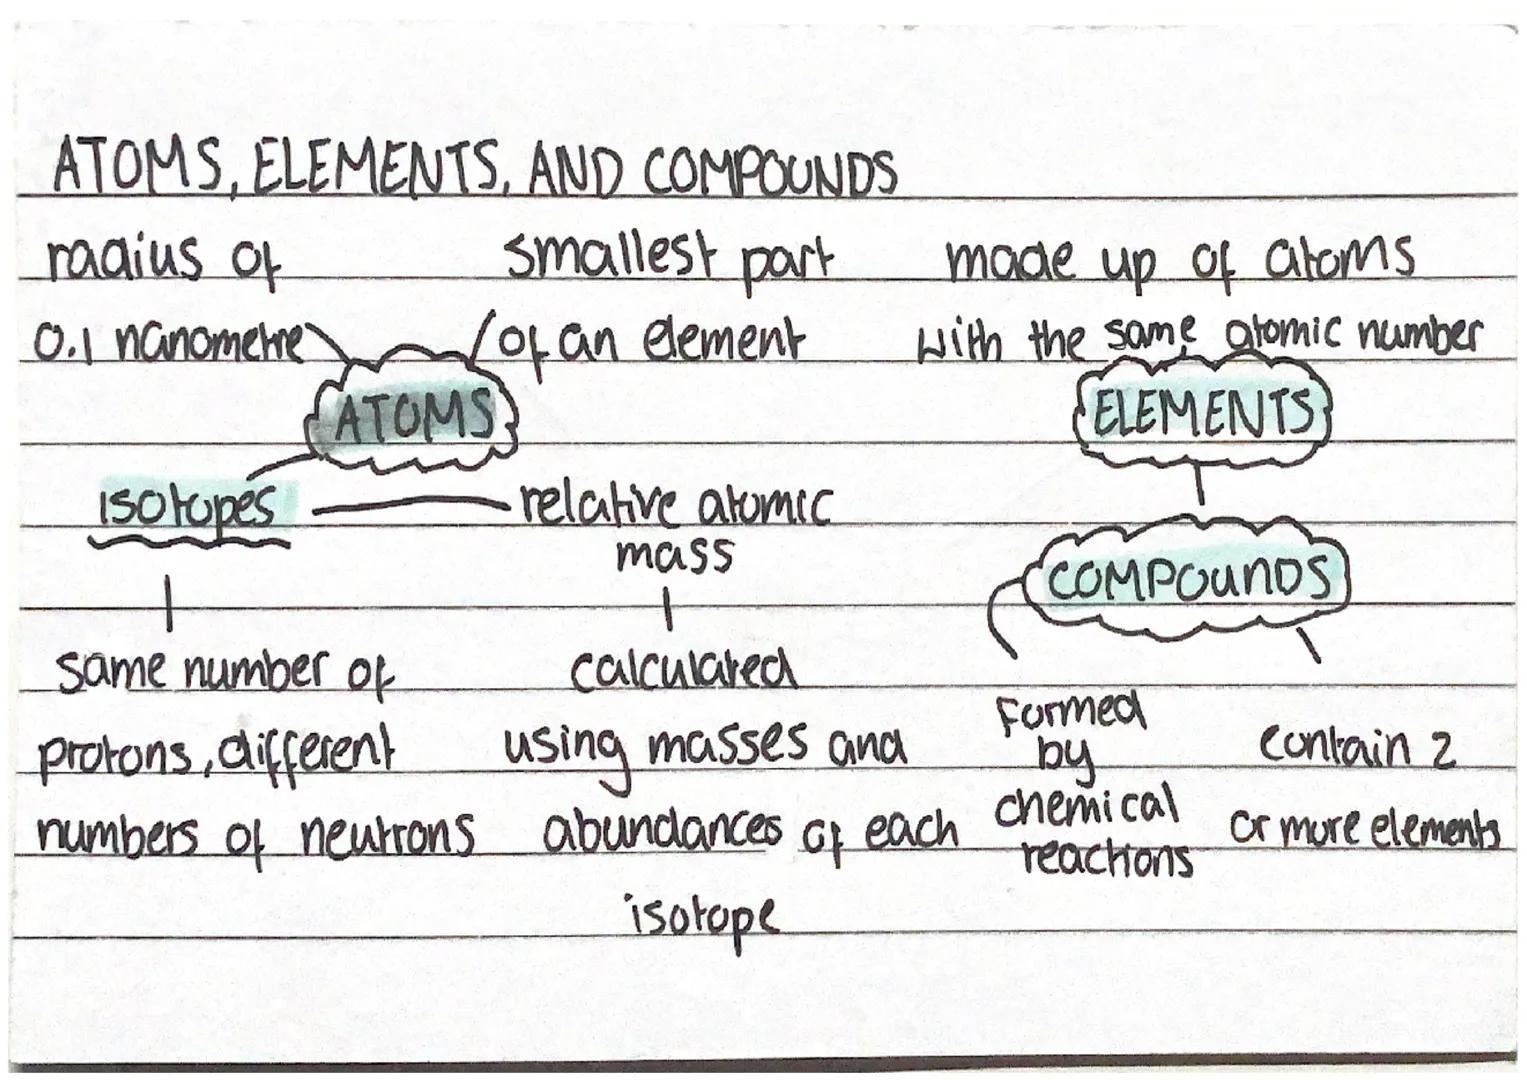 ATOMS, ELEMENTS, AND COMPOUNDS
radius of
0.1 nanometre
smallest part
of an element
ATOMS
isotopes
relative atomic
mass
same number of
protons, different
numbers of neutrons
calculated
using masses and
abundances of each
isotope
made up of atoms
with the same atomic number
ELEMENTS
COMPOUNDS
Formed
by
chemical
reactions
contain 2
or more elements